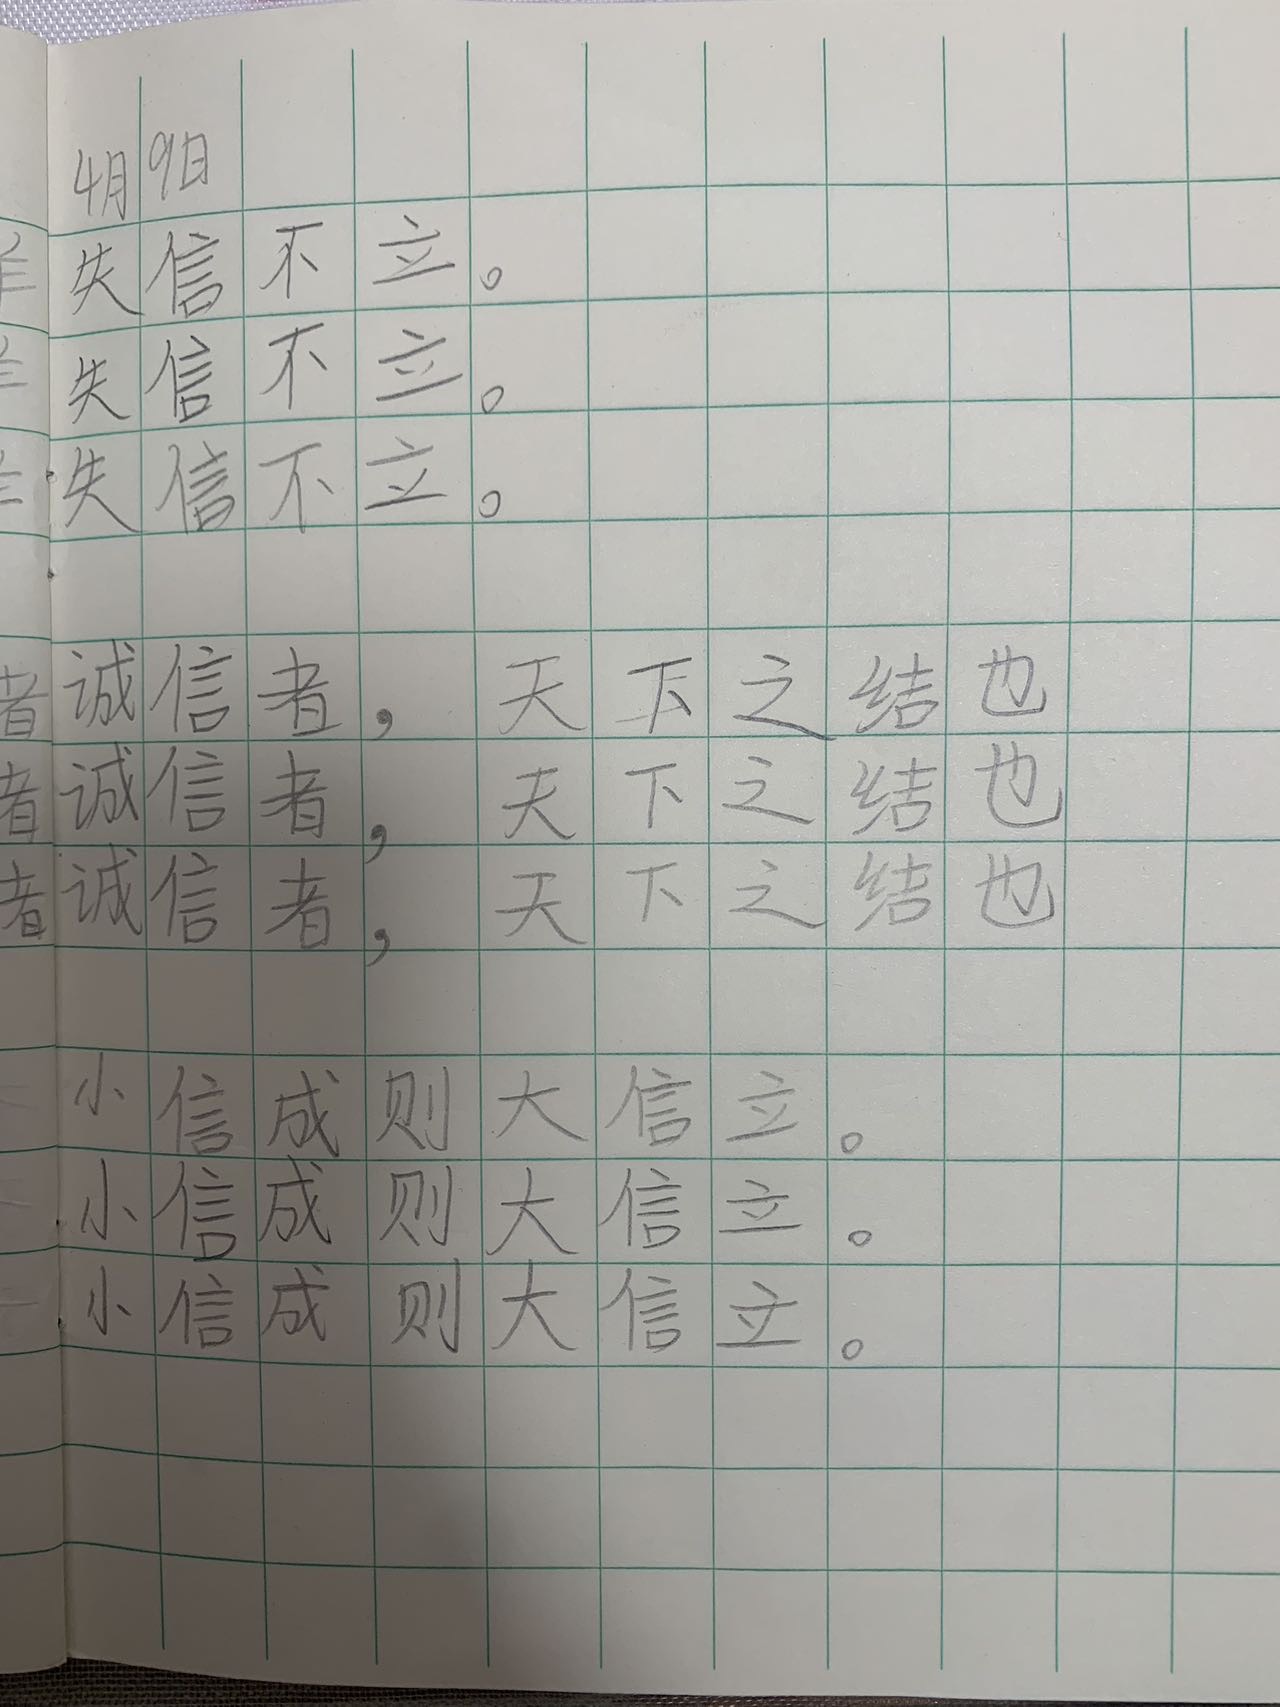 4月9日
失信不立。
失信不立。
失信不立。
者诚信者，天下之结也
者诚信者，天下之结也
者诚信者，天下之结也
小信成则大信立。
小信成则大信立。
小信成则大信立。